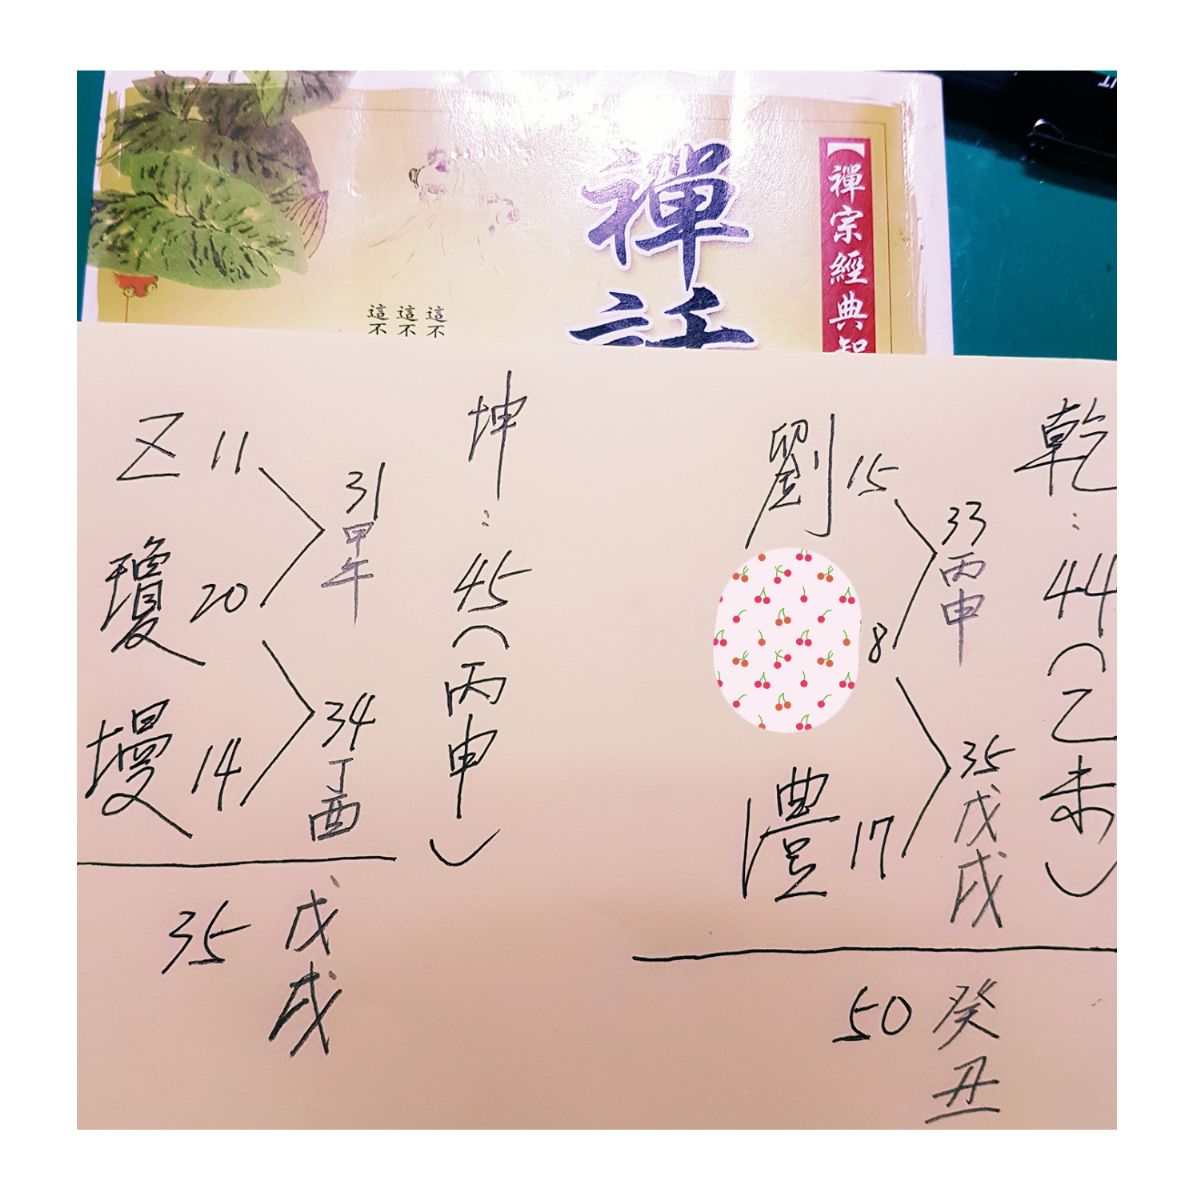 【禪宗經典智
禪話
這不
這不
這不
乾：44（乙未）
劉 15
8
澧 17
33 丙申
35 戊戌
50 癸丑
坤：45（丙申）
乙 11
瓊 20
墁 14
31 甲午
34 丁酉
35 戊戌